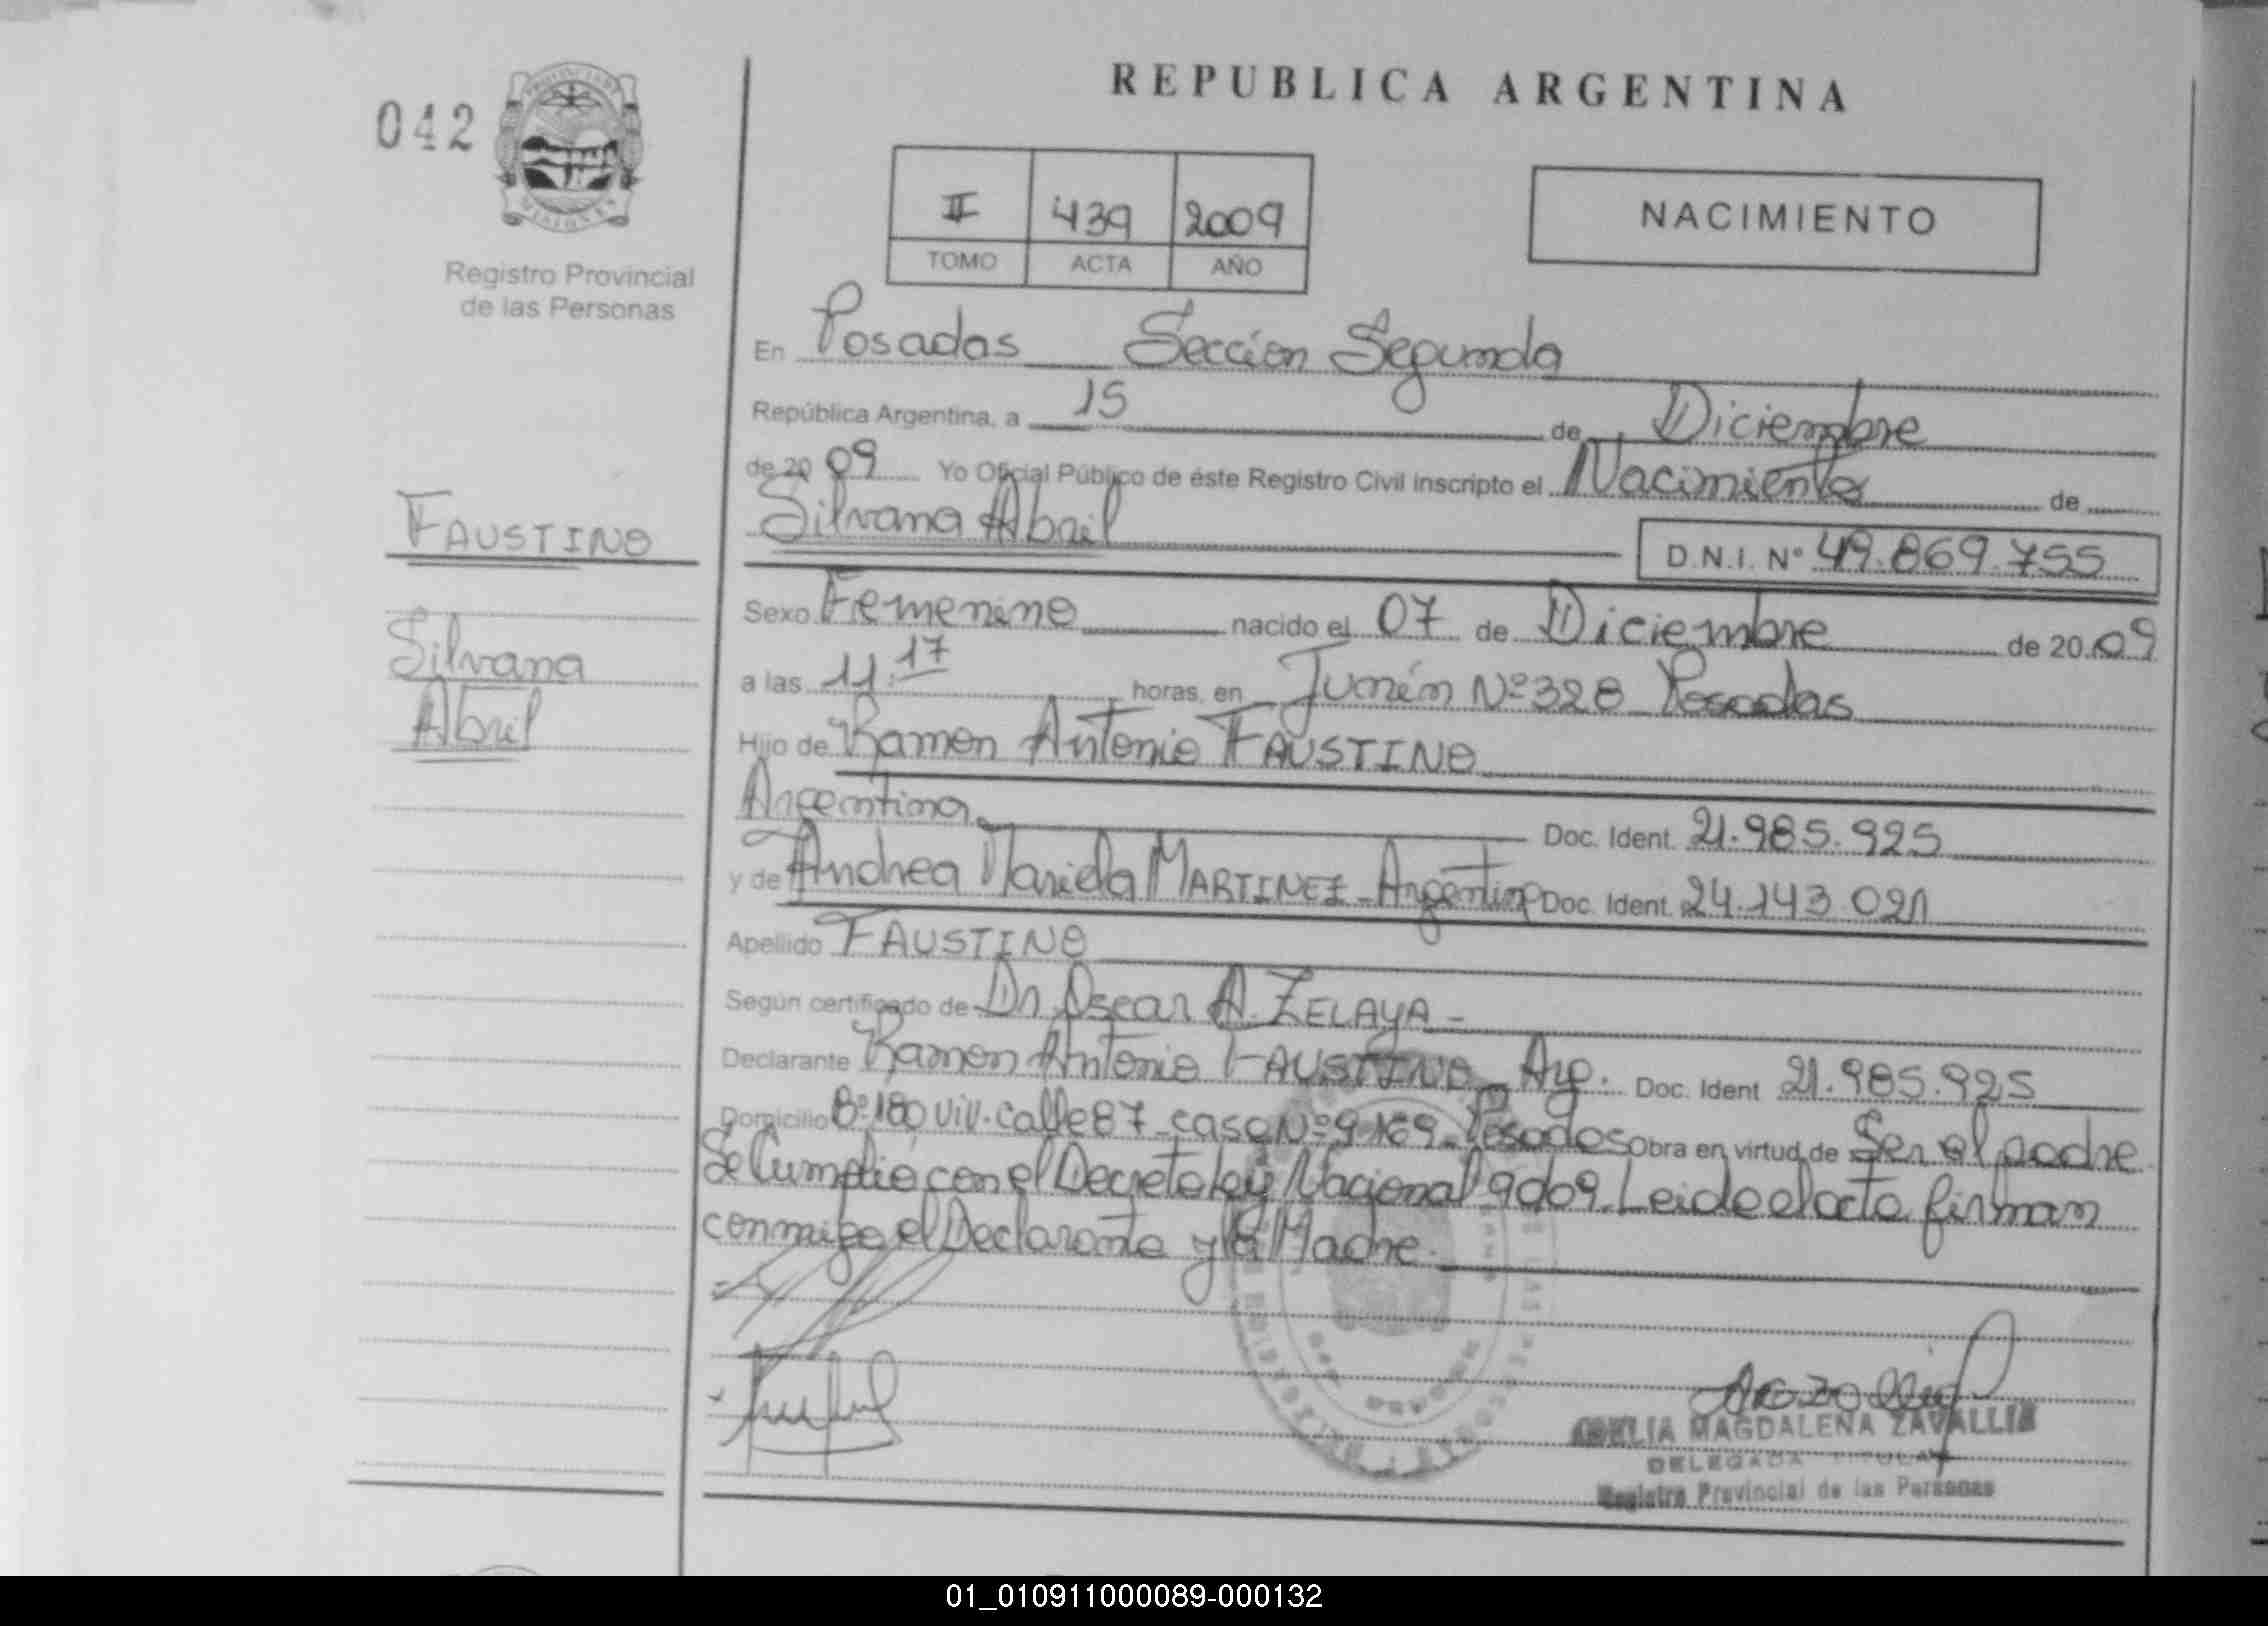 REPUBLICA ARGENTINA
042
PROVINCIA DE
MISIONES
Registro Provincial
de las Personas
II 439 2009
TOMO ACTA AÑO
NACIMIENTO
En Posadas Sección Segunda
República Argentina, a 15 de Diciembre
de 20 09 Yo Oficial Público de éste Registro Civil inscripto el Nacimiento de
Silvana Abril
D.N.I. Nº 49.869.755
FAUSTINO
Silvana
Abril
Sexo Femenino nacido el 07 de Diciembre de 20 09
a las 11:17 horas, en Junín Nº 328 Posadas
Hijo de Ramon Antonio FAUSTINO
Argentino Doc. Ident. 21.985.925
y de Andrea Mariela MARTINEZ - Argentina Doc. Ident. 24.143.021
Apellido FAUSTINO
Según certificado de Dr. Oscar A. ZELAYA -
Declarante Ramon Antonio FAUSTINO - Arg. Doc. Ident 21.985.925
Domicilio Bº 180 Viv. Calle 87 - casa Nº 9169 - Posadas Obra en virtud de Ser el padre
Se Cumplió con el Decreto Ley Nacional 9009. Leido el acta firman
conmigo el Declarante y la Madre.
MAGDALENA ZAVALLIA
DELEGADA TITULAR
Registro Provincial de las Personas
01_010911000089-000132